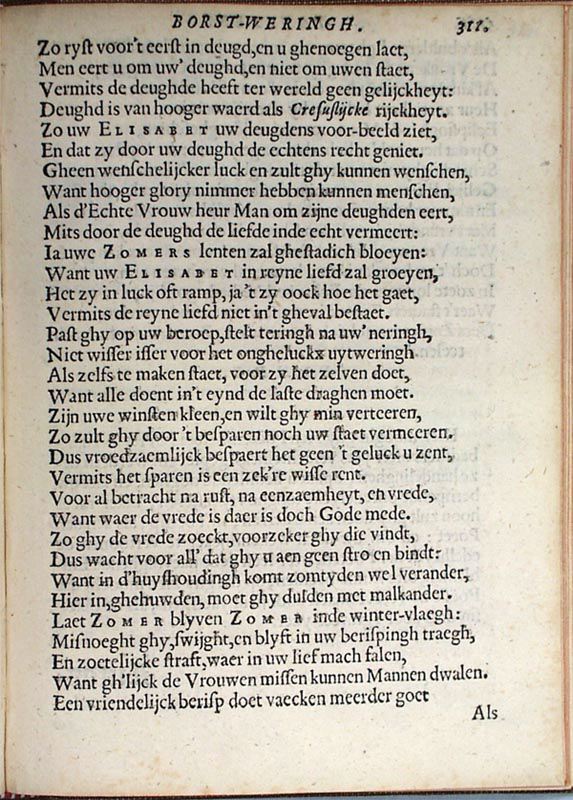 BORST-WERINGH. 311.
Zo ryſt voor't eerſt in deugd,en u ghenoegen laet,
Men eert u om uw' deughd,en niet om uwen ſtaet,
Vermits de deughde heeft ter wereld geen gelijckheyt:
Deughd is van hooger waerd als Creſuſlijcke rijckheyt.
Zo uw ELISABET uw deugdens voor-beeld ziet,
En dat zy door uw deughd de echtens recht geniet.
Gheen wenſchelijcker luck en zult ghy kunnen wenſchen,
Want hooger glory nimmer hebben kunnen menſchen,
Als d'Echte Vrouw heur Man om zijne deughden eert,
Mits door de deughd de liefde inde echt vermeert:
Ia uwe ZOMERS lenten zal gheſtadich bloeyen:
Want uw ELISABET in reyne liefd zal groeyen,
Het zy in luck oft ramp, ja 't zy oock hoe het gaet,
Vermits de reyne liefd niet in't gheval beſtaet.
Paſt ghy op uw beroep,ſtelt teringh na uw' neringh,
Niet wiſſer iſſer voor het ongheluckx uytweringh
Als zelfs te maken ſtaet, voor zy het zelven doet,
Want alle doent in't eynd de laſte draghen moet.
Zijn uwe winſten kleen,en wilt ghy min verteeren,
Zo zult ghy door 't beſparen noch uw ſtaet vermeeren.
Dus vroedzaemlijck beſpaert het geen 't geluck u zent,
Vermits het ſparen is een zek're wiſſe rent.
Voor al betracht na ruſt, na eenzaemheyt, en vrede,
Want waer de vrede is daer is doch Gode mede.
Zo ghy de vrede zoeckt,voorzeker ghy die vindt,
Dus wacht voor all' dat ghy u aen geen ſtro en bindt:
Want in d'huyſhoudingh komt zomtyden wel verander,
Hier in,ghehuwden, moet ghy dulden met malkander.
Laet ZOMER blyven ZOMER inde winter-vlaegh:
Miſnoeght ghy,ſwijght,en blyft in uw beriſpingh traegh,
En zoetelijcke ſtraft,waer in uw lief mach falen,
Want gh'lijck de Vrouwen miſſen kunnen Mannen dwalen.
Een vriendelijck beriſp doet vaecken meerder goet
Als